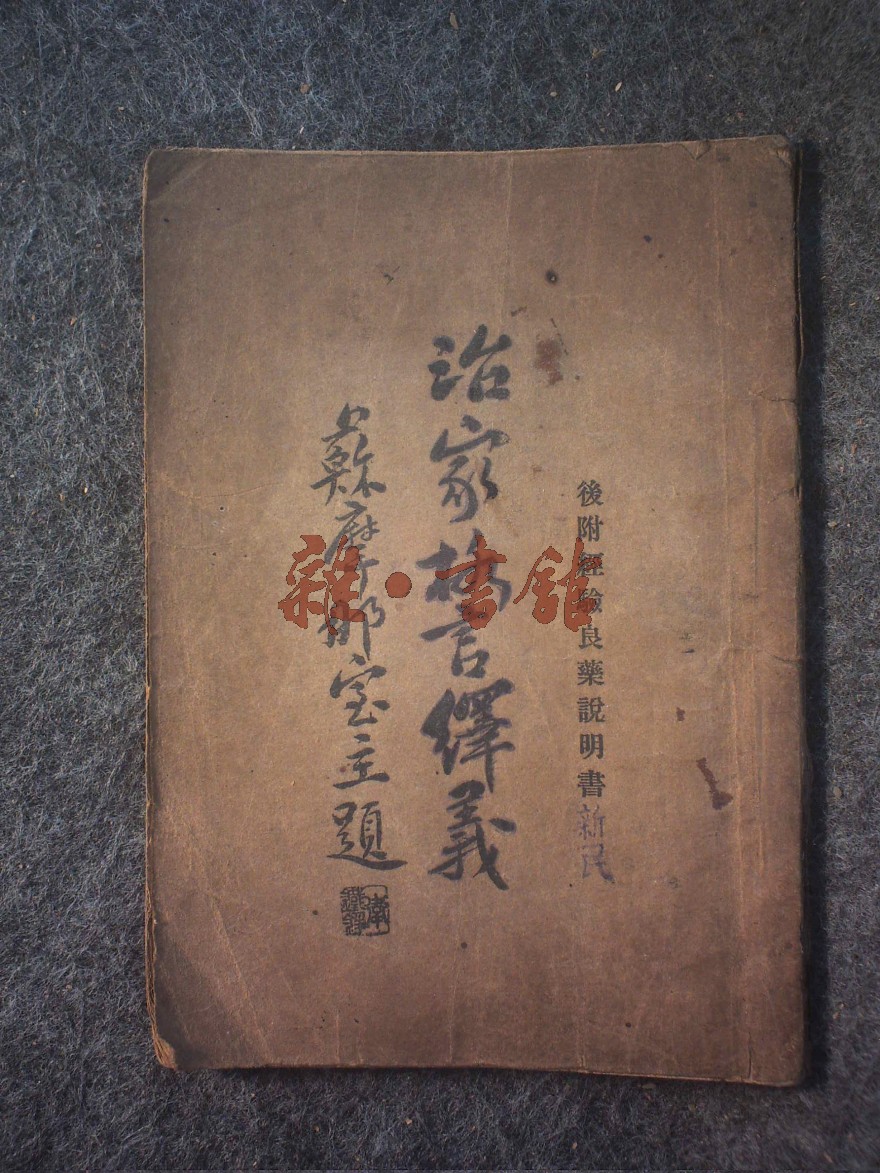 後附經驗良藥說明書新民
治家格言繹義
蘇摩那室主題
雜·書館